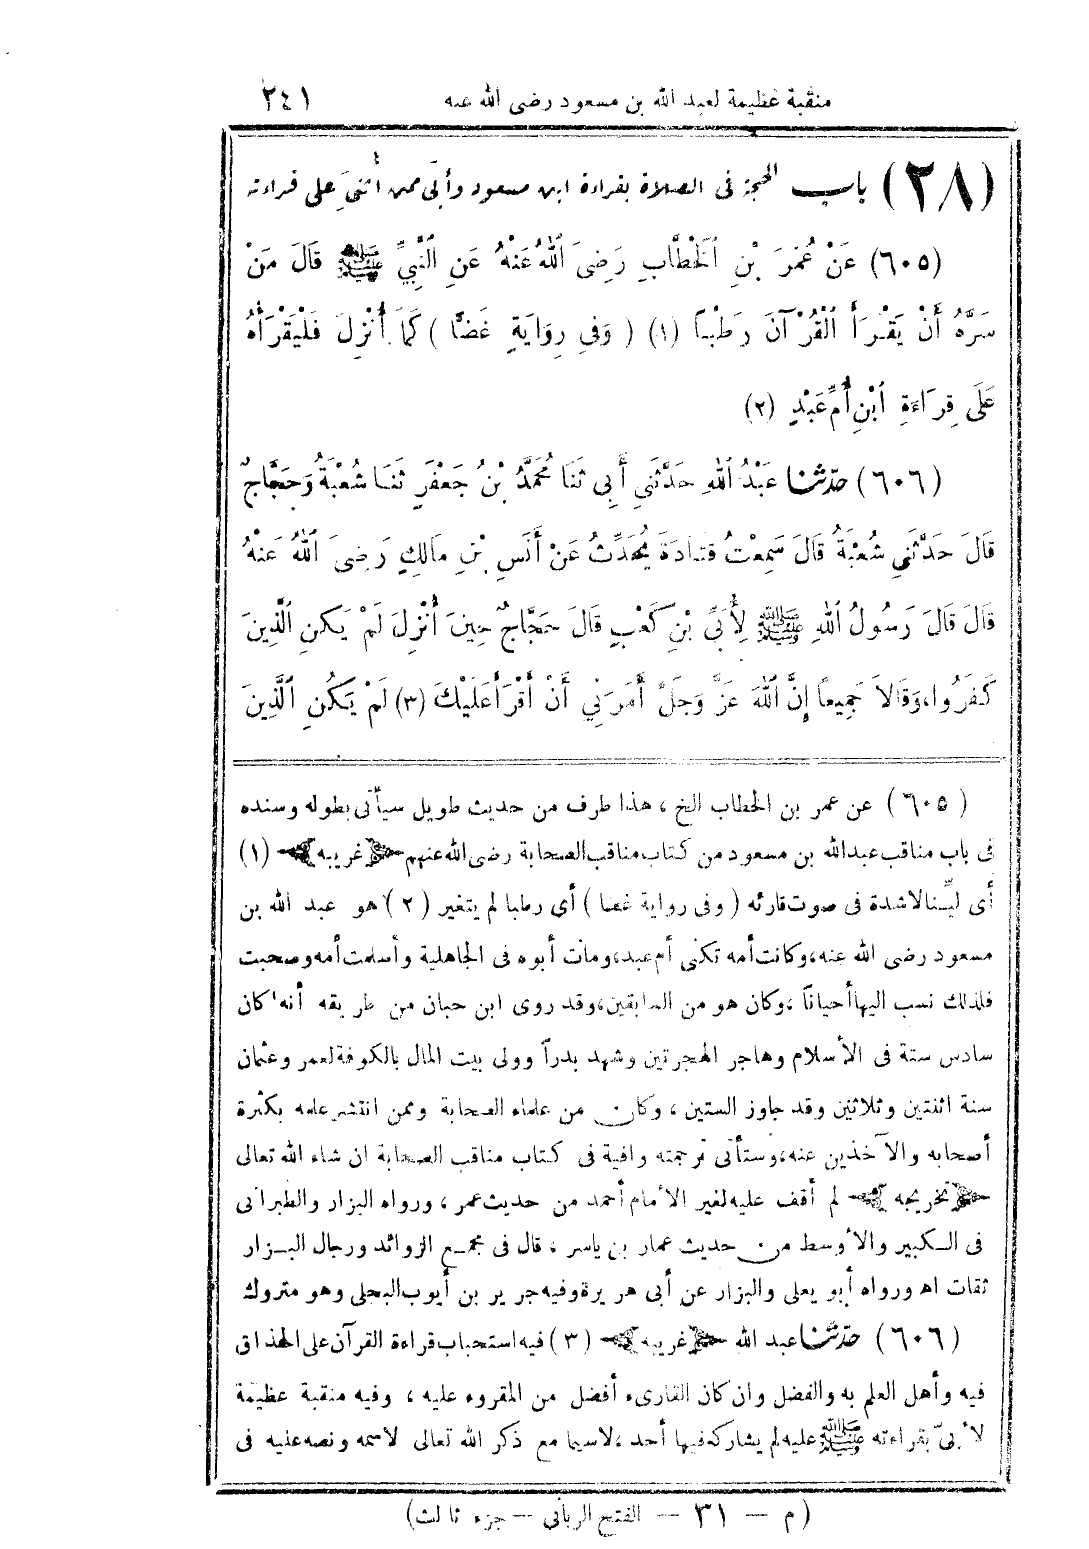 منقبة عظيمة لعبد الله بن مسعود رضى الله عنه ٢٤١
(٢٨) باب الحجة فى الصلاة بقراءة ابن مسعود وأبىّ ممن أُثنىَ على قراءته
(٦٠٥) عَنْ عُمَرَ بْنِ الْخَطَّابِ رَضِىَ اللهُ عَنْهُ عَنِ النَّبِيِّ ﷺ قَالَ مَنْ
سَرَّهُ أَنْ يَقْرَأَ الْقُرْآنَ رَطْبًا (١) ( وَفِى رِوَايَةٍ غَضًّا ) كَمَا أُنْزِلَ فَلْيَقْرَأْهُ
عَلَى قِرَاءَةِ ابْنِ أُمِّ عَبْدٍ (٢)
(٦٠٦) حدّثنا عَبْدُ اللهِ حَدَّثَنِي أَبِى ثَنَا مُحَمَّدُ بْنُ جَعْفَرٍ ثَنَا شُعْبَةُ وَحَجَّاجٌ
قَالَ حَدَّثَنِي شُعْبَةُ قَالَ سَمِعْتُ قَتَادَةَ يُحَدِّثُ عَنْ أَنَسِ بْنِ مَالِكٍ رَضِىَ اللهُ عَنْهُ
قَالَ قَالَ رَسُولُ اللهِ ﷺ لِأُبَىِّ بْنِ كَعْبٍ قَالَ حَجَّاجٌ حِينَ أُنْزِلَ لَمْ يَكُنِ الَّذِينَ
كَفَرُوا، وَقَالاَ جَمِيعًا إِنَّ اللهَ عَزَّ وَجَلَّ أَمَرَنِي أَنْ أَقْرَأَ عَلَيْكَ (٣) لَمْ يَكُنِ الَّذِينَ
(٦٠٥) عن عمر بن الخطاب الخ ، هذا طرف من حديث طويل سيأتى بطوله وسنده
فى باب مناقب عبد الله بن مسعود من كتاب مناقب الصحابة رضى الله عنهم ﴿غريبه﴾ (١)
أى ليّنا لا شدة فى صوت قارئه ( وفى رواية غضا ) أى رطبا لم يتغير (٢) هو عبد الله بن
مسعود رضى الله عنه، وكانت أمه تكنى أم عبد، ومات أبوه فى الجاهلية وأسلمت أمه وصحبت
فلذلك نسب اليها أحيانًا ، وكان هو من السابقين، وقد روى ابن حبان من طريقه أنه كان
سادس ستة فى الأسلام وهاجر الهجرتين وشهد بدرًا وولى بيت المال بالكوفة لعمر وعثمان
سنة اثنتين وثلاثين وقد جاوز الستين ، وكان من علماء الصحابة وممن انتشر علمه بكثرة
أصحابه والآخذين عنه، وستأتى ترجمته وافية فى كتاب مناقب الصحابة ان شاء الله تعالى
﴿تخريجه﴾ لم أقف عليه لغير الأمام أحمد من حديث عمر ، ورواه البزار والطبرانى
فى الكبير والأوسط من حديث عمار بن ياسر ، قال فى مجمع الزوائد ورجال البزار
ثقات اه ورواه أبو يعلى والبزار عن أبى هريرة وفيه جرير بن أيوب البجلى وهو متروك
(٦٠٦) حدّثنا عبد الله ﴿غريبه﴾ (٣) فيه استحباب قراءة القرآن على الحذاق
فيه وأهل العلم به والفضل وان كان القارىء أفضل من المقروء عليه ، وفيه منقبة عظيمة
لأبىّ بقراءته ﷺ عليه لم يشاركه فيها أحد ، لاسيما مع ذكر الله تعالى لاسمه ونصه عليه فى
(م — ٣١ — الفتح الربانى — جزء ثالث)